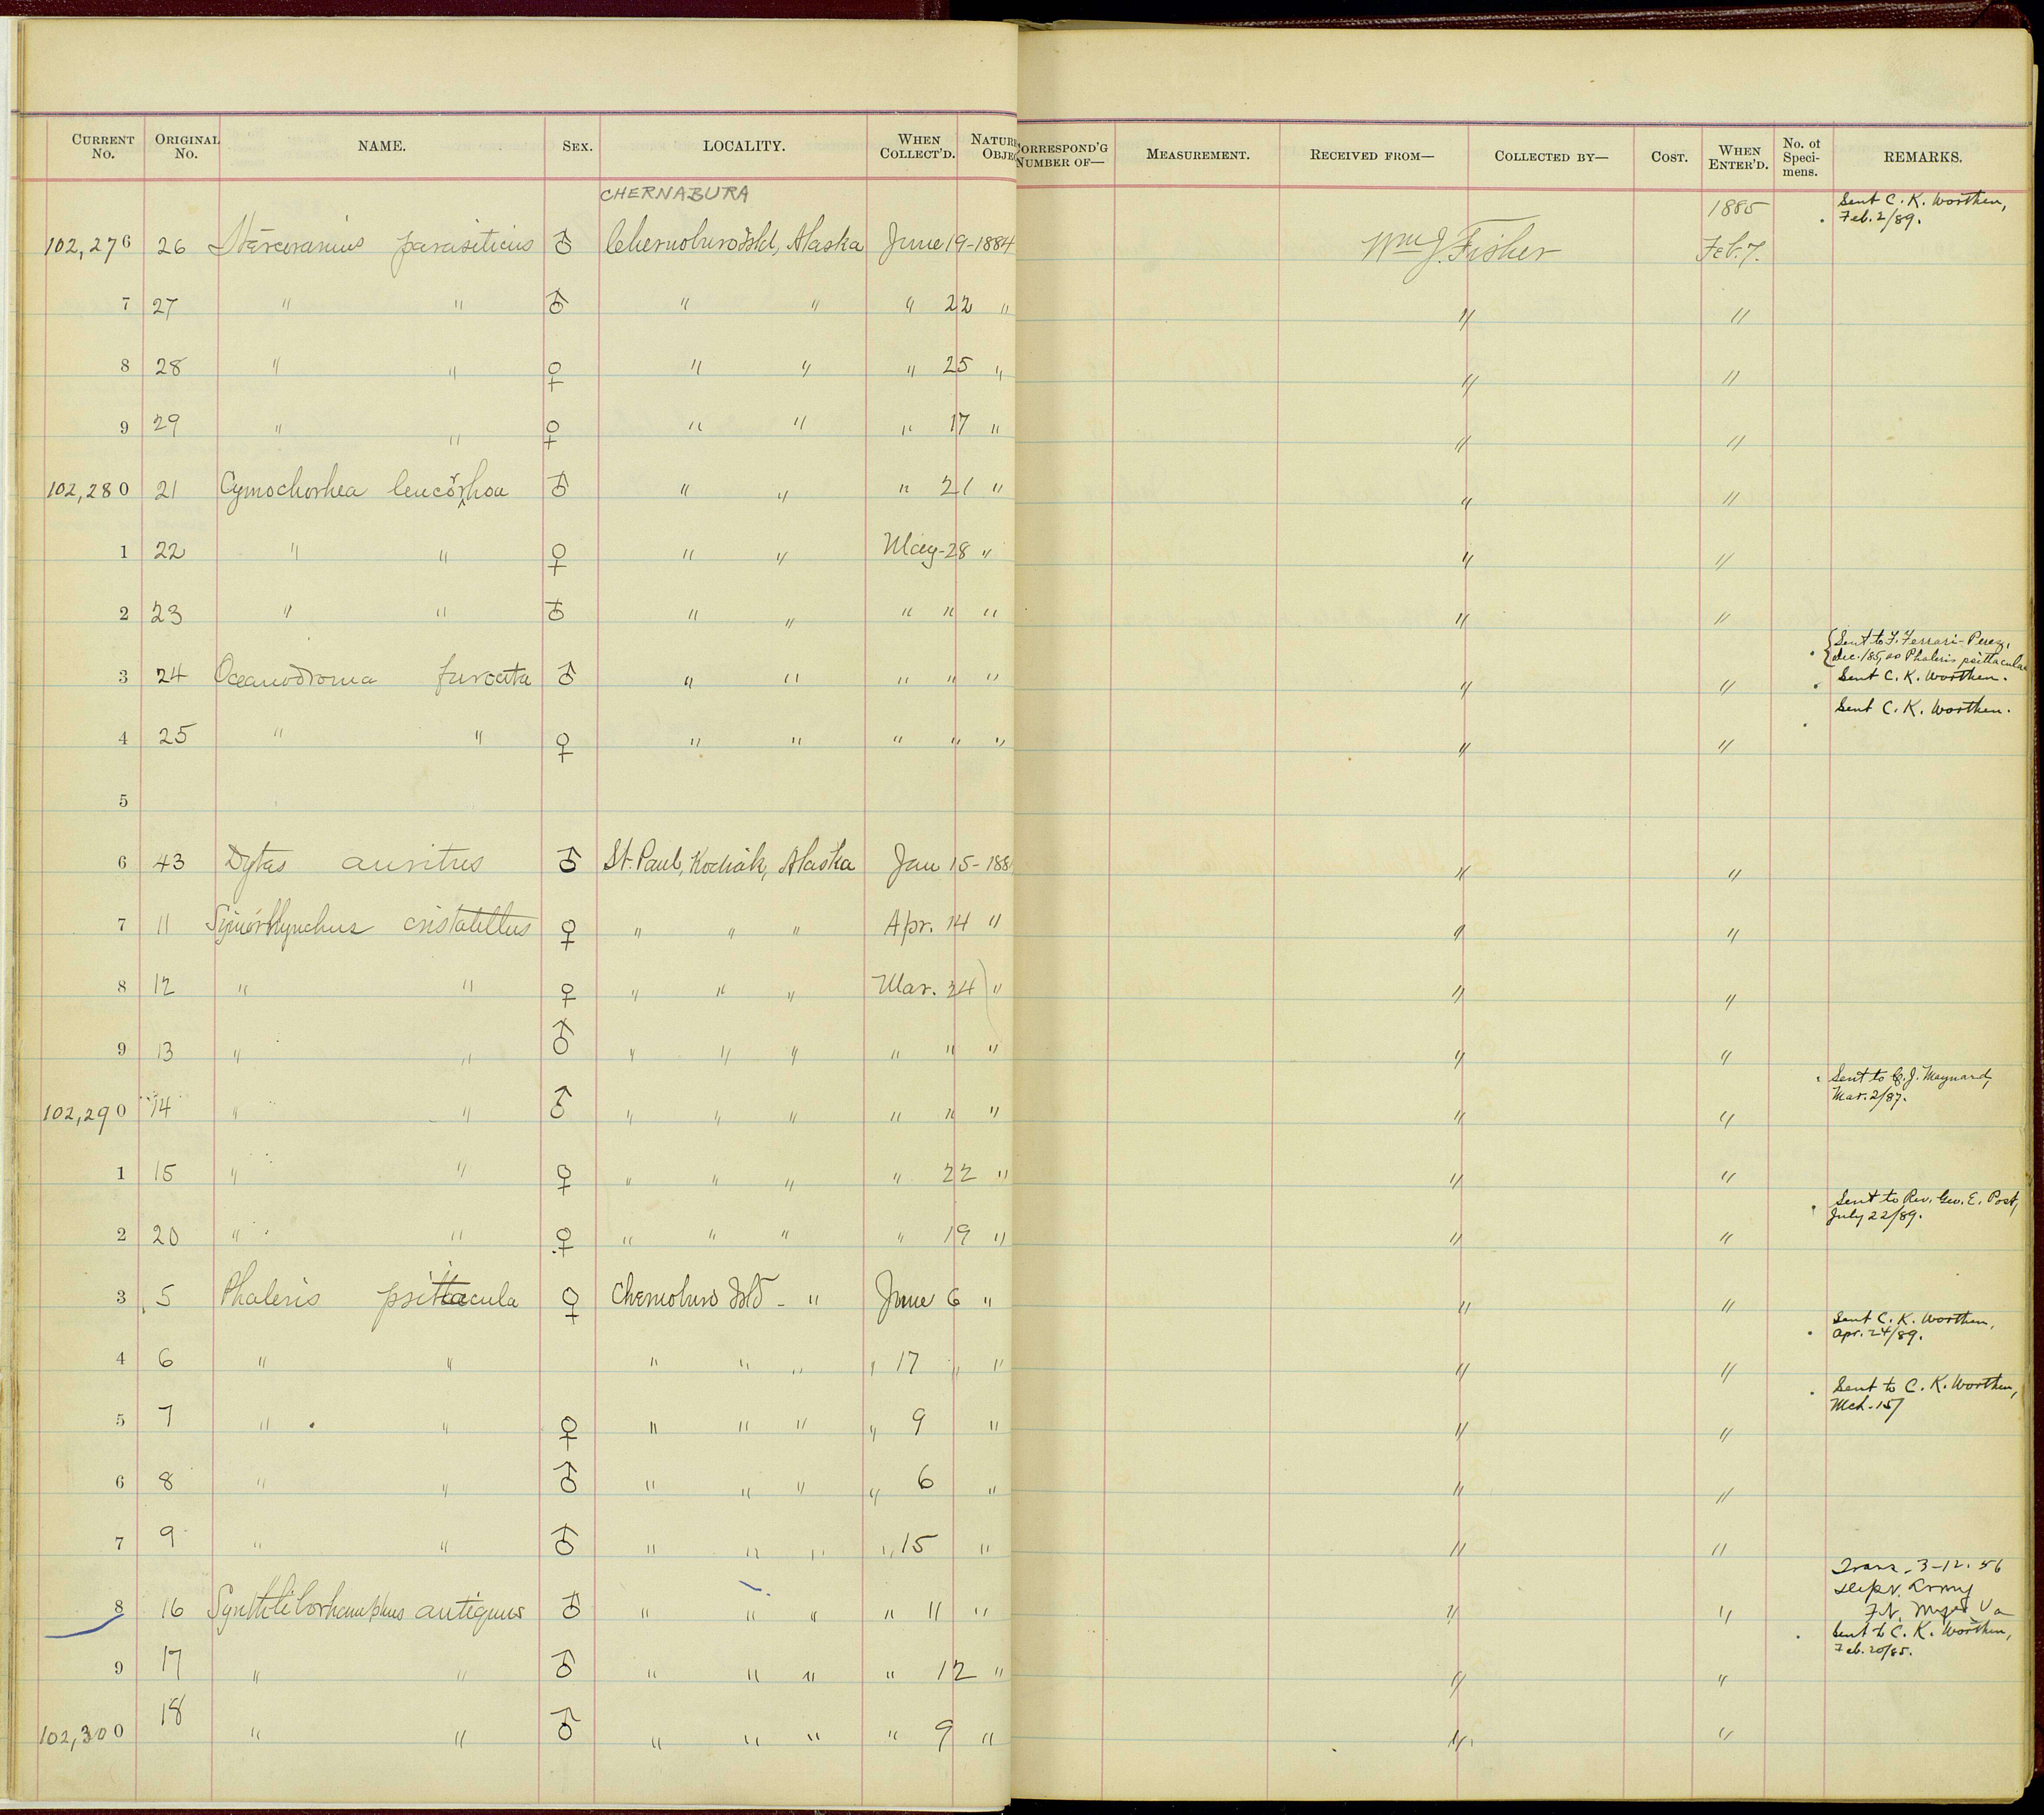 CURRENT No. ORIGINAL No. NAME. SEX. LOCALITY. WHEN COLLECT'D. NATURE OBJE
CORRESPOND'G NUMBER OF— MEASUREMENT. RECEIVED FROM— COLLECTED BY— COST. WHEN ENTER'D. No. of Speci-mens. REMARKS.
CHERNABURA
1885 Sent C. K. Worthen,
Feb. 2/89.
102,276 26 Stercorarius parasiticus ♂ Chernoburo Isld, Alaska June 19-1884 Wm J. Fisher Feb. 7.
7 27 " " ♂ " " " 22 " " "
8 28 " " ♀ " " " 25 " " "
9 29 " " ♀ " " " 17 " " "
102,280 21 Cymochorhea leucorhoa ♂ " " " 21 " " "
1 22 " " ♀ " " May-28 " " "
2 23 " " ♂ " " " " " " "
{Sent to F. Ferrari-Perez,
Dec. /85, as Phaleris psittacula
3 24 Oceanodroma furcata ♂ " " " " " " " Sent C. K. Worthen.
Sent C. K. Worthen.
4 25 " " ♀ " " " " " " "
5
6 43 Dytes auritus ♂ St. Paul, Kodiak, Alaska Jan 15-188 " "
7 11 Simorhynchus cristatellus ♀ " " " Apr. 14 " " "
8 12 " " ♀ " " " Mar. 24 " " "
9 13 " " ♂ " " " " " " " "
Sent to C. J. Maynard,
Mar. 2/87.
102,290 14 " " ♂ " " " " " " " "
1 15 " " ♀ " " " " 22 " " "
Sent to Rev. Geo. E. Post,
July 22/89.
2 20 " " ♀ " " " " 19 " " "
3 5 Phaleris psittacula ♀ Chernoburo Isld - " June 6 " " "
Sent C. K. Worthen,
Apr. 24/89.
4 6 " " " " " " 17 " " " "
Sent to C. K. Worthen,
Mch. 15/
5 7 " " ♀ " " " " 9 " " "
6 8 " " ♂ " " " " 6 " " "
7 9 " " ♂ " " " " 15 " " "
Trans. 3-12-56
Dept. Army
Ft. Myer Va
8 16 Synthliborhamphus antiquus ♂ " " " " 11 " " "
Sent to C. K. Worthen,
Feb. 20/85.
9 17 " " ♂ " " " " 12 " " "
102,300 18 " " ♂ " " " " 9 " " "